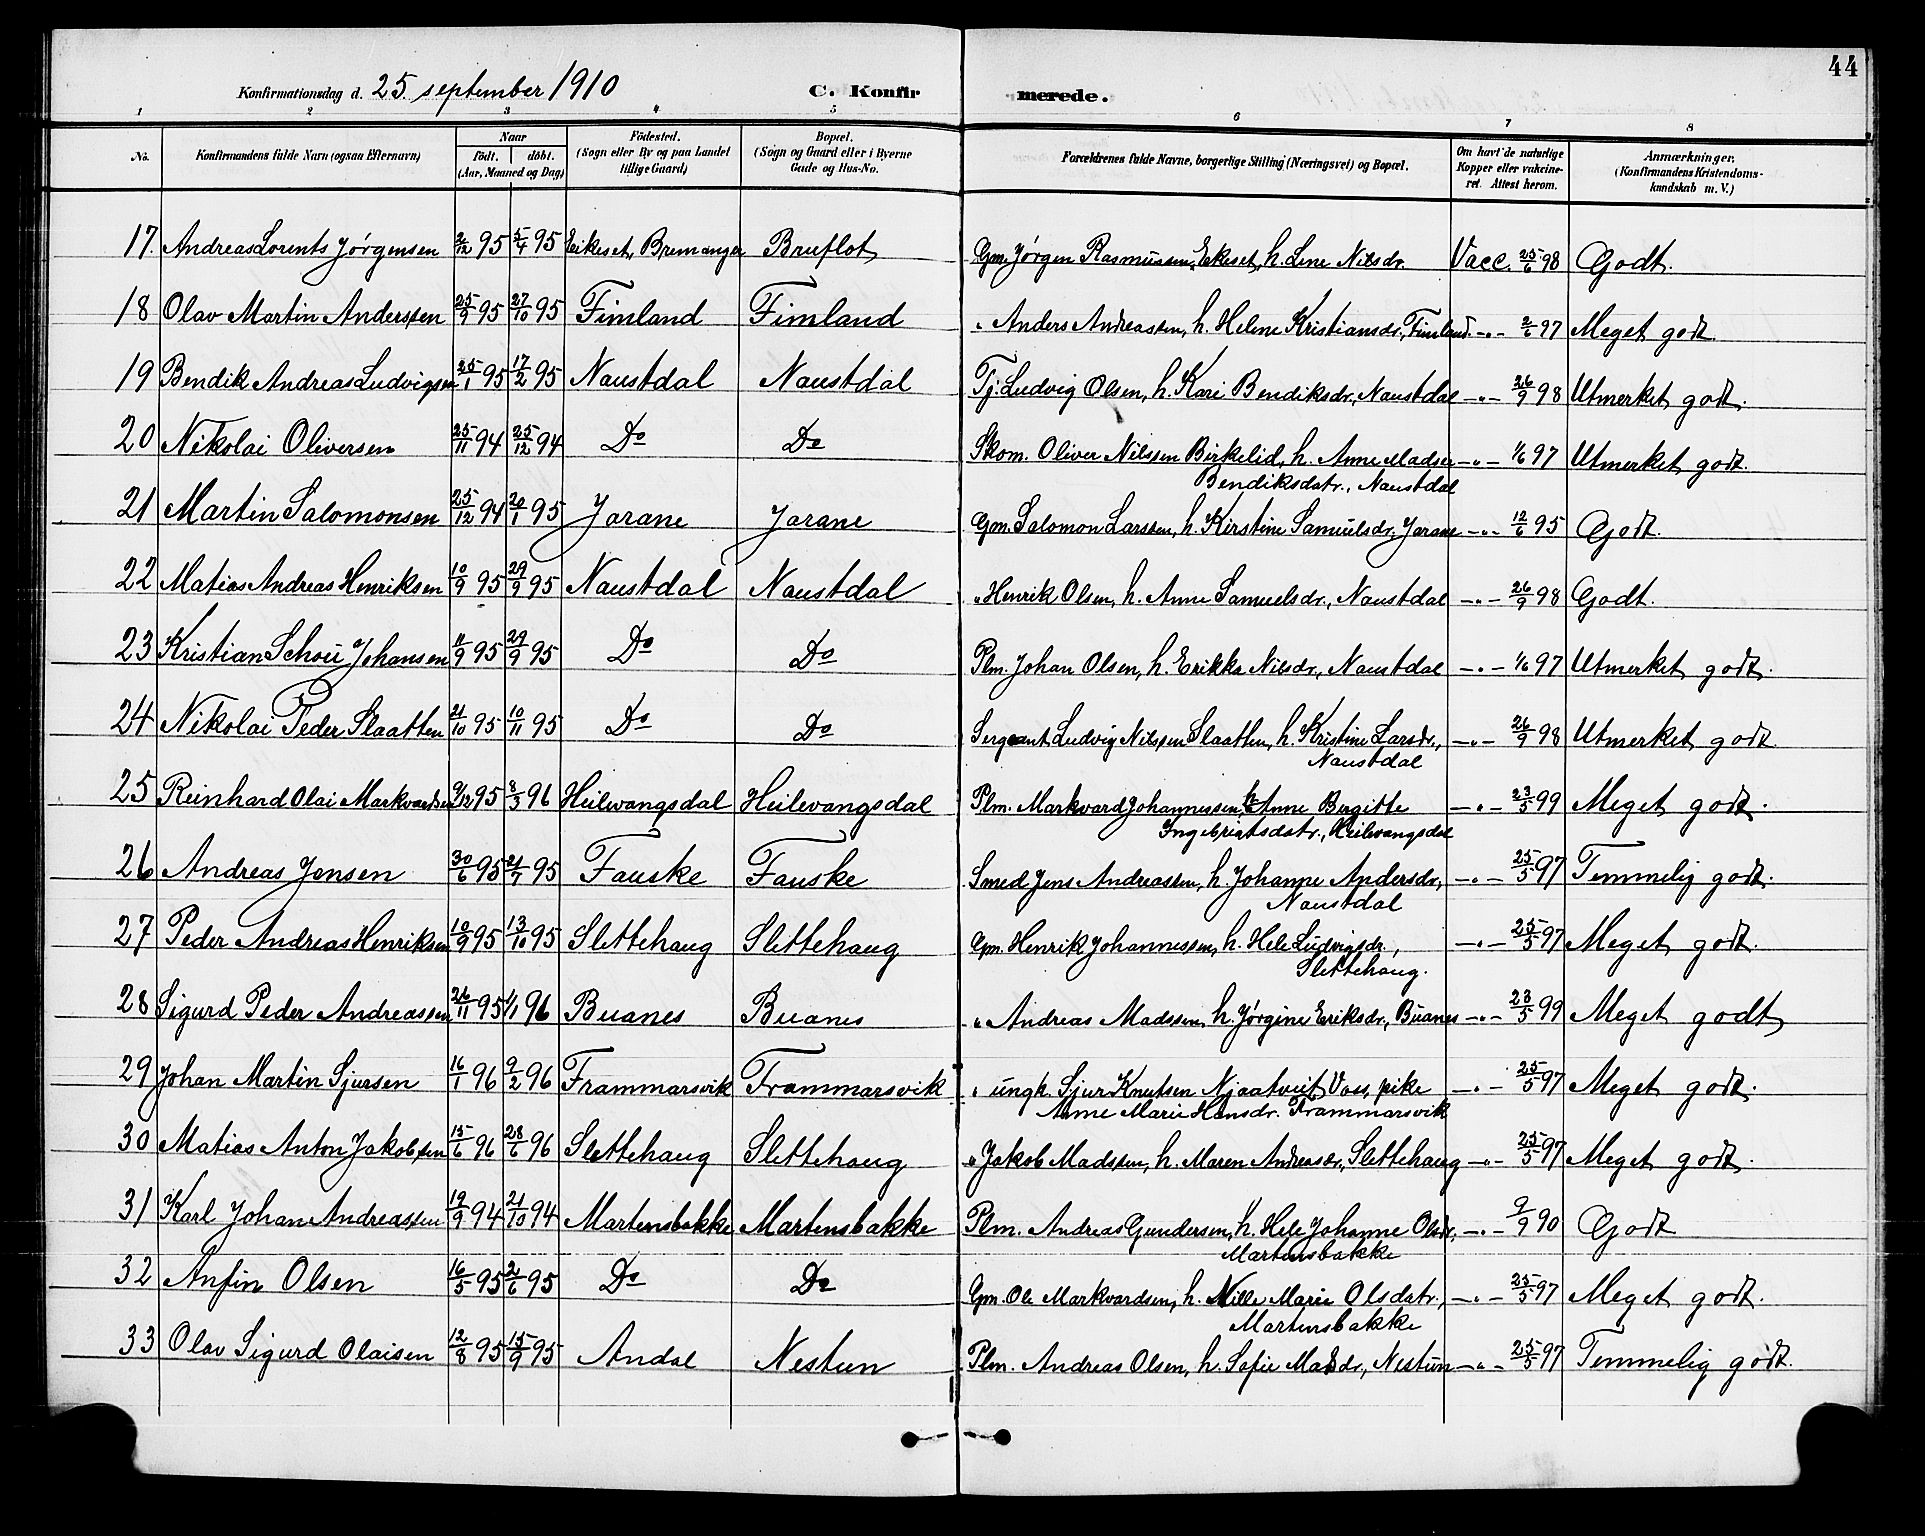 44
Konfirmationsdag d. 25 september 1910 C. Konfirmerede.
1 2 3 4 5 6 7 8
No. Konfirmandens fulde Navn (ogsaa Efternavn) Naar födt. döbt. (Aar, Maaned og Dag) Födested. (Sogn eller By og paa Landet tillige Gaard) Bopæl. (Sogn og Gaard eller i Byerne Gade og Hus-No. Forældrenes fulde Navne, borgerlige Stilling (Næringsvei) og Bopæl. Om havt de naturlige Kopper eller vakcineret. Attest herom. Anmærkninger. (Konfirmandens Kristendomskundskab m. V.)
17. Andreas Lorents Jørgensen 2/12 95 5/4 95 Eikeset, Bremanger Bruflot Gm. Jørgen Rasmussen, Eikeset, h. Lene Nilsdr. Vacc. 25/6 98 Godt.
18 Olav Martin Anderssen 25/9 95 27/10 95 Fimland Fimland " Anders Andreassen, h. Helene Kristiansdr., Fimland. -"- 2/6 97 Meget godt.
19 Bendik Andreas Ludvigsen 25/1 95 17/2 95 Naustdal Naustdal Tj. Ludvig Olsen, h. Kari Bendiksdr., Naustdal -"- 26/9 98 Utmerket godt.
20 Nikolai Oliversen 25/11 94 25/12 94 Do Do Skom. Oliver Nilssen Birkelid, h. Anne Madsea -"- 1/6 97 Utmerket godt.
Bendiksdatr., Naustdal
21 Martin Salomonsen 25/12 94 20/1 95 Jarane Jarane Gm. Salomon Larssen, h. Kirstine Samuelsdr. Jarane -"- 12/6 95 Godt.
22 Matias Andreas Henriksen 10/9 95 29/9 95 Naustdal Naustdal " Henrik Olsen, h. Anne Samuelsdr., Naustdal -"- 26/9 98 Godt.
23 Kristian Schou Johansen 11/9 95 29/9 95 Do Do Plm. Johan Olsen, h. Erikka Nilsdr., Naustdal -"- 1/6 97 Utmerket godt.
24 Nikolai Peder Slaatten 21/10 95 10/11 95 Do Do Sergeant Ludvig Nilssen Slaatten, h. Kristine Larsdr., -"- 26/9 98 Utmerket godt.
Naustdal
25 Reinhard Olai Markvardsen 9/12 95 8/3 96 Heilevangsdal Heilevangsdal Plm. Markvard Johannessen, h. Anne Birgitte -"- 23/5 99 Meget godt.
Ingebrigtsdatr., Heilevangsdal
26 Andreas Jensen 30/6 95 21/7 95 Fauske Fauske Smed Jens Andreassen, h. Johanne Andersdr., -"- 25/5 97 Temmelig godt.
Naustdal
27 Peder Andreas Henriksen 10/9 95 13/10 95 Slettehaug Slettehaug Gm. Henrik Johannessen, h. Hele Ludvigsdr., -"- 25/5 97 Meget godt.
Slettehaug.
28 Sigurd Peder Andreassen 26/11 95 1/1 96 Buanes Buanes " Andreas Madssen, h. Jørgine Eriksdr., Buanes -"- 23/5 99 Meget godt
29 Johan Martin Sjursen 16/1 96 9/2 96 Frammarsvik Frammarsvik " ungk. Sjur Knutsen Njaatveit Voss, pike -"- 25/5 97 Meget godt.
Anne Marie Hansdr. Frammarsvik
30 Matias Anton Jakobsen 15/6 96 28/6 96 Slettehaug Slettehaug " Jakob Madssen, h. Maren Andreasdr., Slettehaug -"- 25/5 97 Meget godt.
31 Karl Johan Andreassen 19/9 94 21/10 94 Martensbakke Martensbakke Plm. Andreas Gundersen, h. Hele Johanne Olsdr., -"- 9/9 90 Godt
Martensbakke
32 Anfin Olsen 16/5 95 2/6 95 Do Do Gm. Ole Markvardsen, h. Nille Marie Olsdatr., -"- 25/5 97 Meget godt.
Martensbakke
33 Olav Sigurd Olaisen 12/8 95 15/9 95 Andal Nestun Plm. Andreas Olsen, h. Sofie Madsdr., Nestun -"- 25/5 97 Temmelig godt.